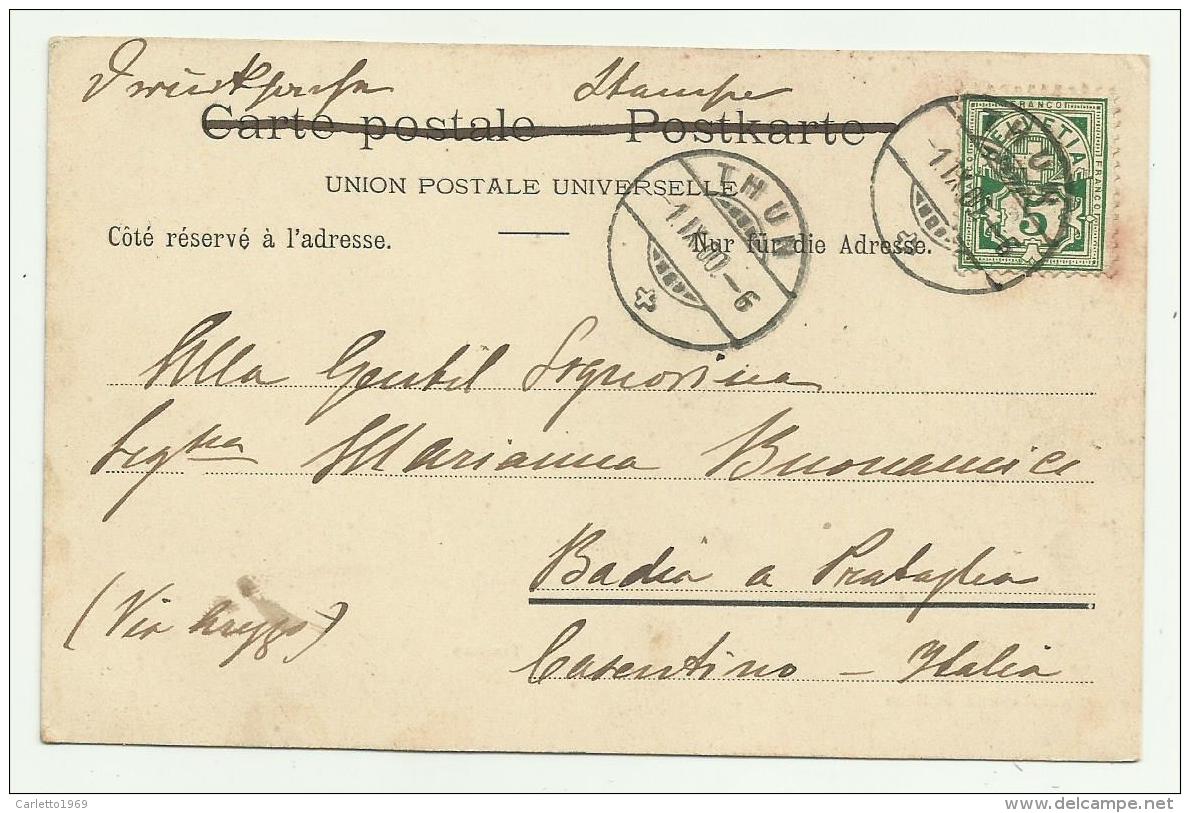 Drucksache Stampe
Carte postale — Postkarte
UNION POSTALE UNIVERSELLE
Côté réservé à l'adresse. Nur für die Adresse.
THUN
-1.IX.00.-6
THUN
-1.IX.00.-6
FRANCO
HELVETIA
FRANCO
FRANCO
5
Alla Gentil Signorina
Marianna Buonamici
Badia a Prataglia
(Via Arezzo)
Casentino – Italia
Carletto1969
delcampe.net